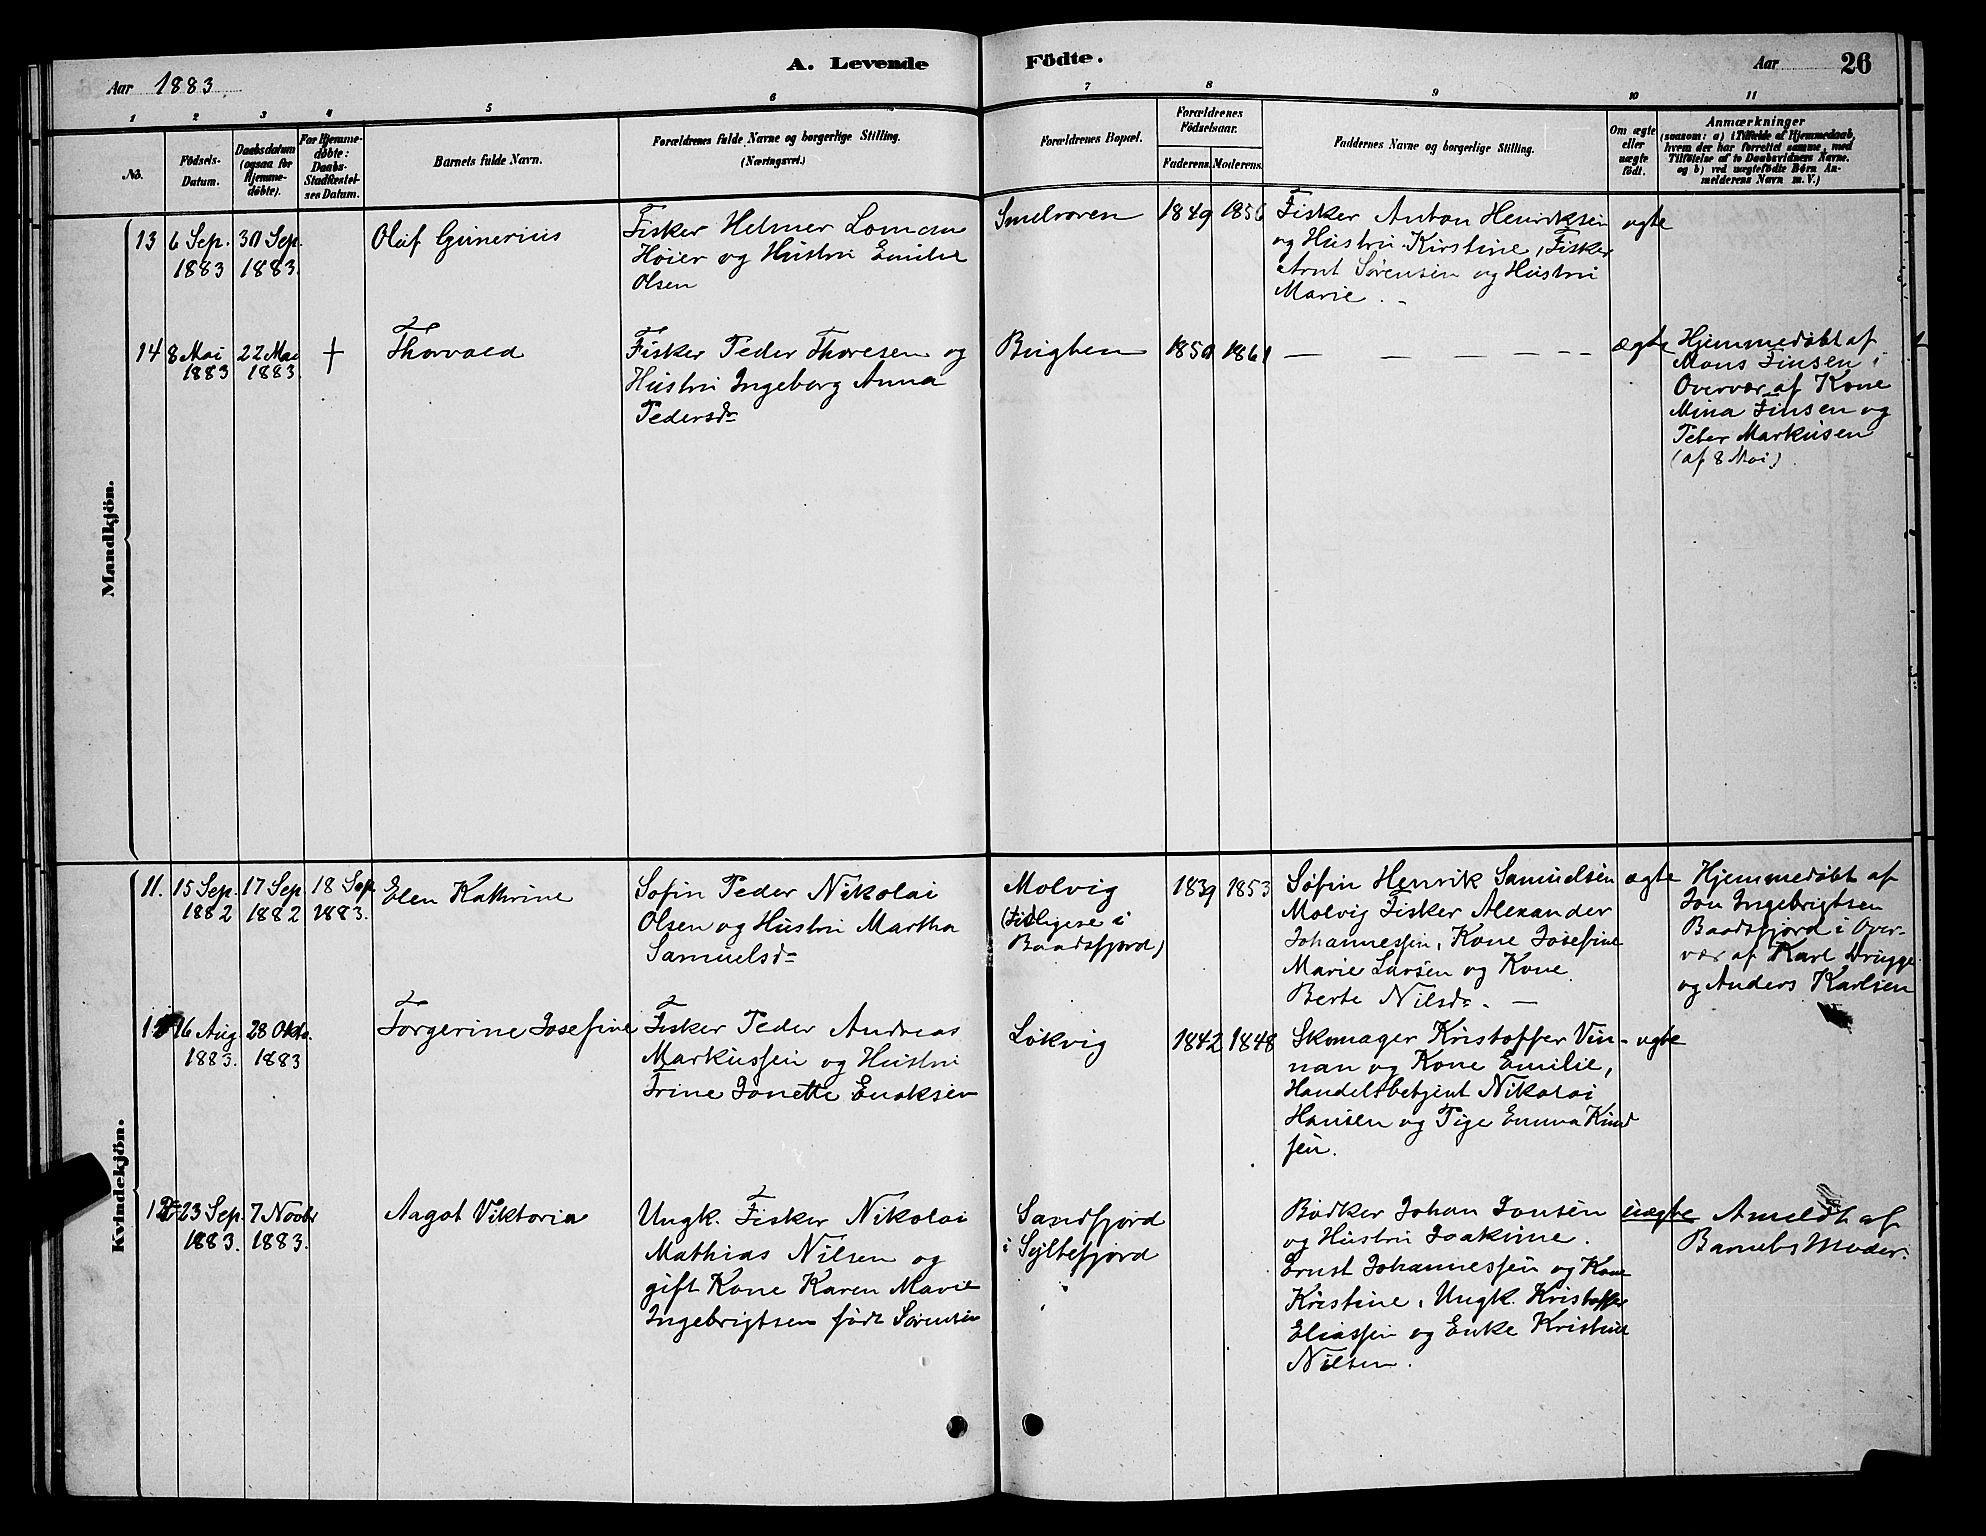 Aar 1883.
A. Levende Födte.
Aar 26
1 2 3 4 5 6 7 8 9 10 11
No.
Födsels-Datum.
Daabsdatum (ogsaa for Hjemme-döbte).
For Hjemme-döbte: Daabs-Stadfæstel-ses Datum.
Barnets fulde Navn.
Forældrenes fulde Navne og borgerlige Stilling.
(Næringsvei.)
Forældrenes Bopæl.
Forældrenes Födselsaar.
Faderens. Moderens.
Faddernes Navne og borgerlige Stilling.
Om ægte eller uægte födt.
Anmærkninger
(saasom: a) i Tilfælde af Hjemmedaab,
hvem der har forrettet samme, med
Tilföielse af to Daabsvidners Navne.
og b) ved uægtefödte Börn An-
melderens Navn m. V.)
Mandkjön.
13 6 Sep. 1883
30 Sep. 1883.
Oluf Gunerius
Fisker Helmer Loman
Høier og Hustru Emilie
Olsen
Smelroren
1849 1856
Fisker Anton Henriksen
og Hustru Kirstine, Fisker
Arnt Sørensen og Hustru
Marie. -
ægte
14 8 Mai 1883
22 Mai 1883.
+
Thorvald
Fisker Peder Thoresen og
Hustru Ingeborg Anna
Pedersdr
Brigten
1850 1861
— — — — - -
ægte
Hjemmedøbt af
Mons Finsen i
Overvær af Kone
Mina Finsen og
Peter Markusen
(af 8 Mai).
Kvindekjön.
11. 15 Sep. 1882
17 Sep. 1882
18 Sep. 1883.
Elen Kathrine
Søfin Peder Nikolai
Olsen og Hustru Martha
Samuelsdr
Molvig
(tidligere i
Baadsfjord)
1839 1853
Søfin Henrik Samuelsen
Molvig Fisker Alexander
Johannessen, Kone Josefine
Marie Larsen og Kone
Berte Nilsdr. —
ægte
Hjemmedøbt af
Jon Ingebrigtsen
Baadsfjord i Over-
vær af Karl Brigge
og Anders Karlsen
12 16 Aug. 1883.
28 Oktb. 1883
Torgerine Josefine
Fisker Peder Andreas
Markussen og Hustru
Trine Jonette Enoksen
Løkvig
1842 1848
Skomager Kristoffer Vin-
nan og Kone Emilie,
Handelsbetjent Nikolai
Hansen og Pige Emma Knud
sen.
ægte
23 Sep. 1883.
7 Novbr 1883.
Aagot Viktoria
Ungk. Fisker Nikolai
Mathias Nilsen og
gift Kone Karen Marie
Ingebrigtsen født Sørensen
Sandfjord
i Syltefjord
Bødker Johan Jonsen
og Hustru Joakime.
Ernst Johannessen og Kone
Kristine, Ungk. Kristoffer
Eliassen og Enke Kristine
Nilsen.
uægte
Anmeldt af
Barnets Moder.